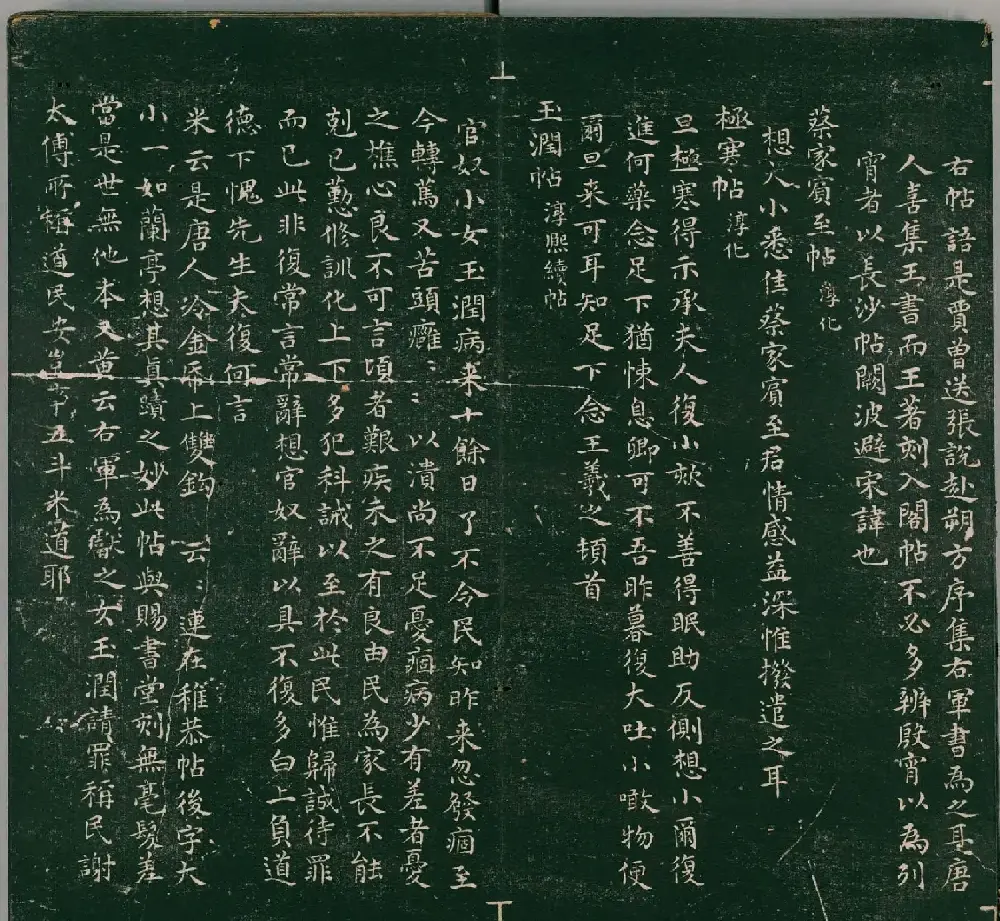 右帖語是賈曾送張說赴朔方序集右軍書為之是唐
人善集王書而王著刻入閣帖不必多辨殷宵以為列
宵者以長沙帖闕波避宋諱也
蔡家賓至帖 淳化
想大小悉佳蔡家賓至君情感益深惟撥遣之耳
極寒帖 淳化
旦極寒得示承夫人復小欬不善得眠助反側想小爾復
進何藥念足下猶悚息卿可不吾昨暮復大吐小噉物便
爾旦来可耳知足下念王羲之頓首
玉潤帖 淳熙續帖
官奴小女玉潤病来十餘日了不令民知昨来忽發痼至
今轉篤又苦頭癰〻以潰尚不足憂痼病少有差者憂
之燋心良不可言頃者艱疾未之有良由民為家長不能
剋已懃修訓化上下多犯科誡以至於此民惟歸誠待罪
而已此非復常言常辭想官奴辭以具不復多白上負道
德下愧先生夫復何言
米云是唐人冷金帋上雙鉤 云〻連在稚恭帖後字大
小一如蘭亭想其真蹟之妙此帖與賜書堂刻無毫髮差
當是世無他本又黄云右軍為獻之女玉潤請罪稱民謝
太傅所 道民安 五斗米道耶